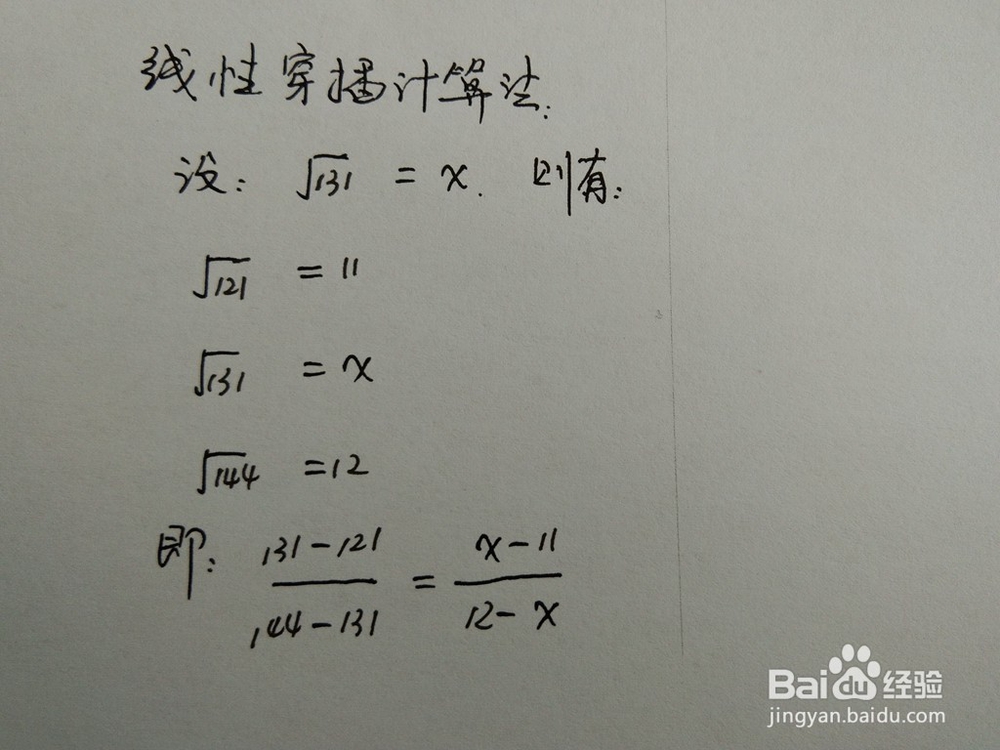 线性穿插计算法.
设: √131 = x. 则有:
√121 = 11
√131 = x
√144 = 12
即: (131-121)/(144-131) = (x-11)/(12-x)
Baidu经验
jingyan.baidu.com